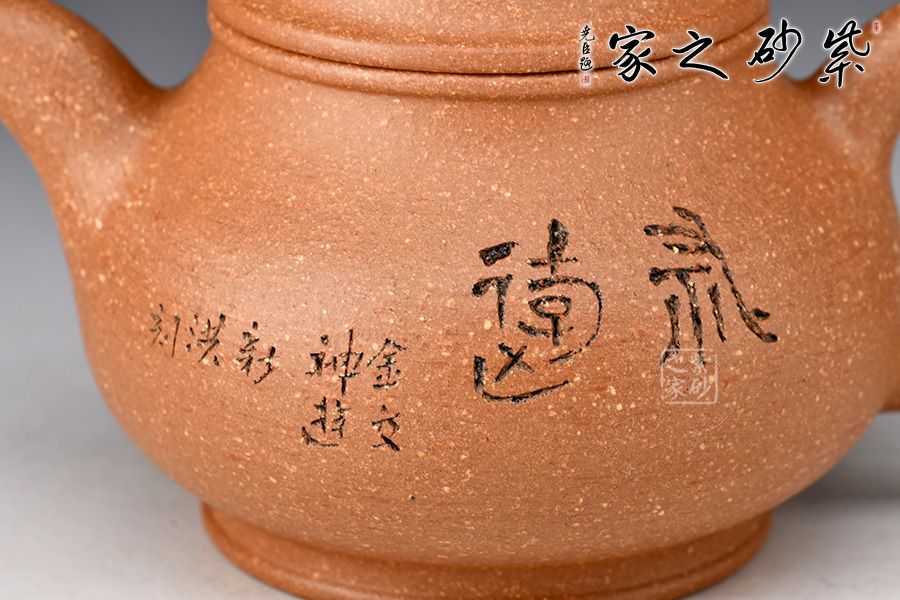 紫砂之家
尧臣题
永遠
金文
神遊
新洪刻
紫砂之家